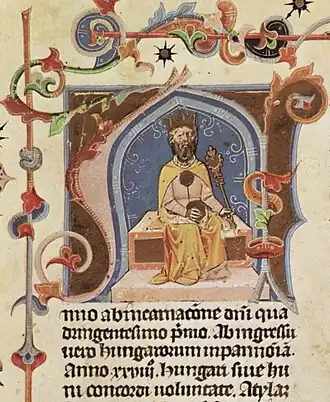 nno ab incarnacõne dñi qua
dringentesimo pͥmo. Ab ingressu
uero hungarorum in pannoniã.
Anno xxviiij. hungari siue hu
ni concordi uoluntate. Atylaz